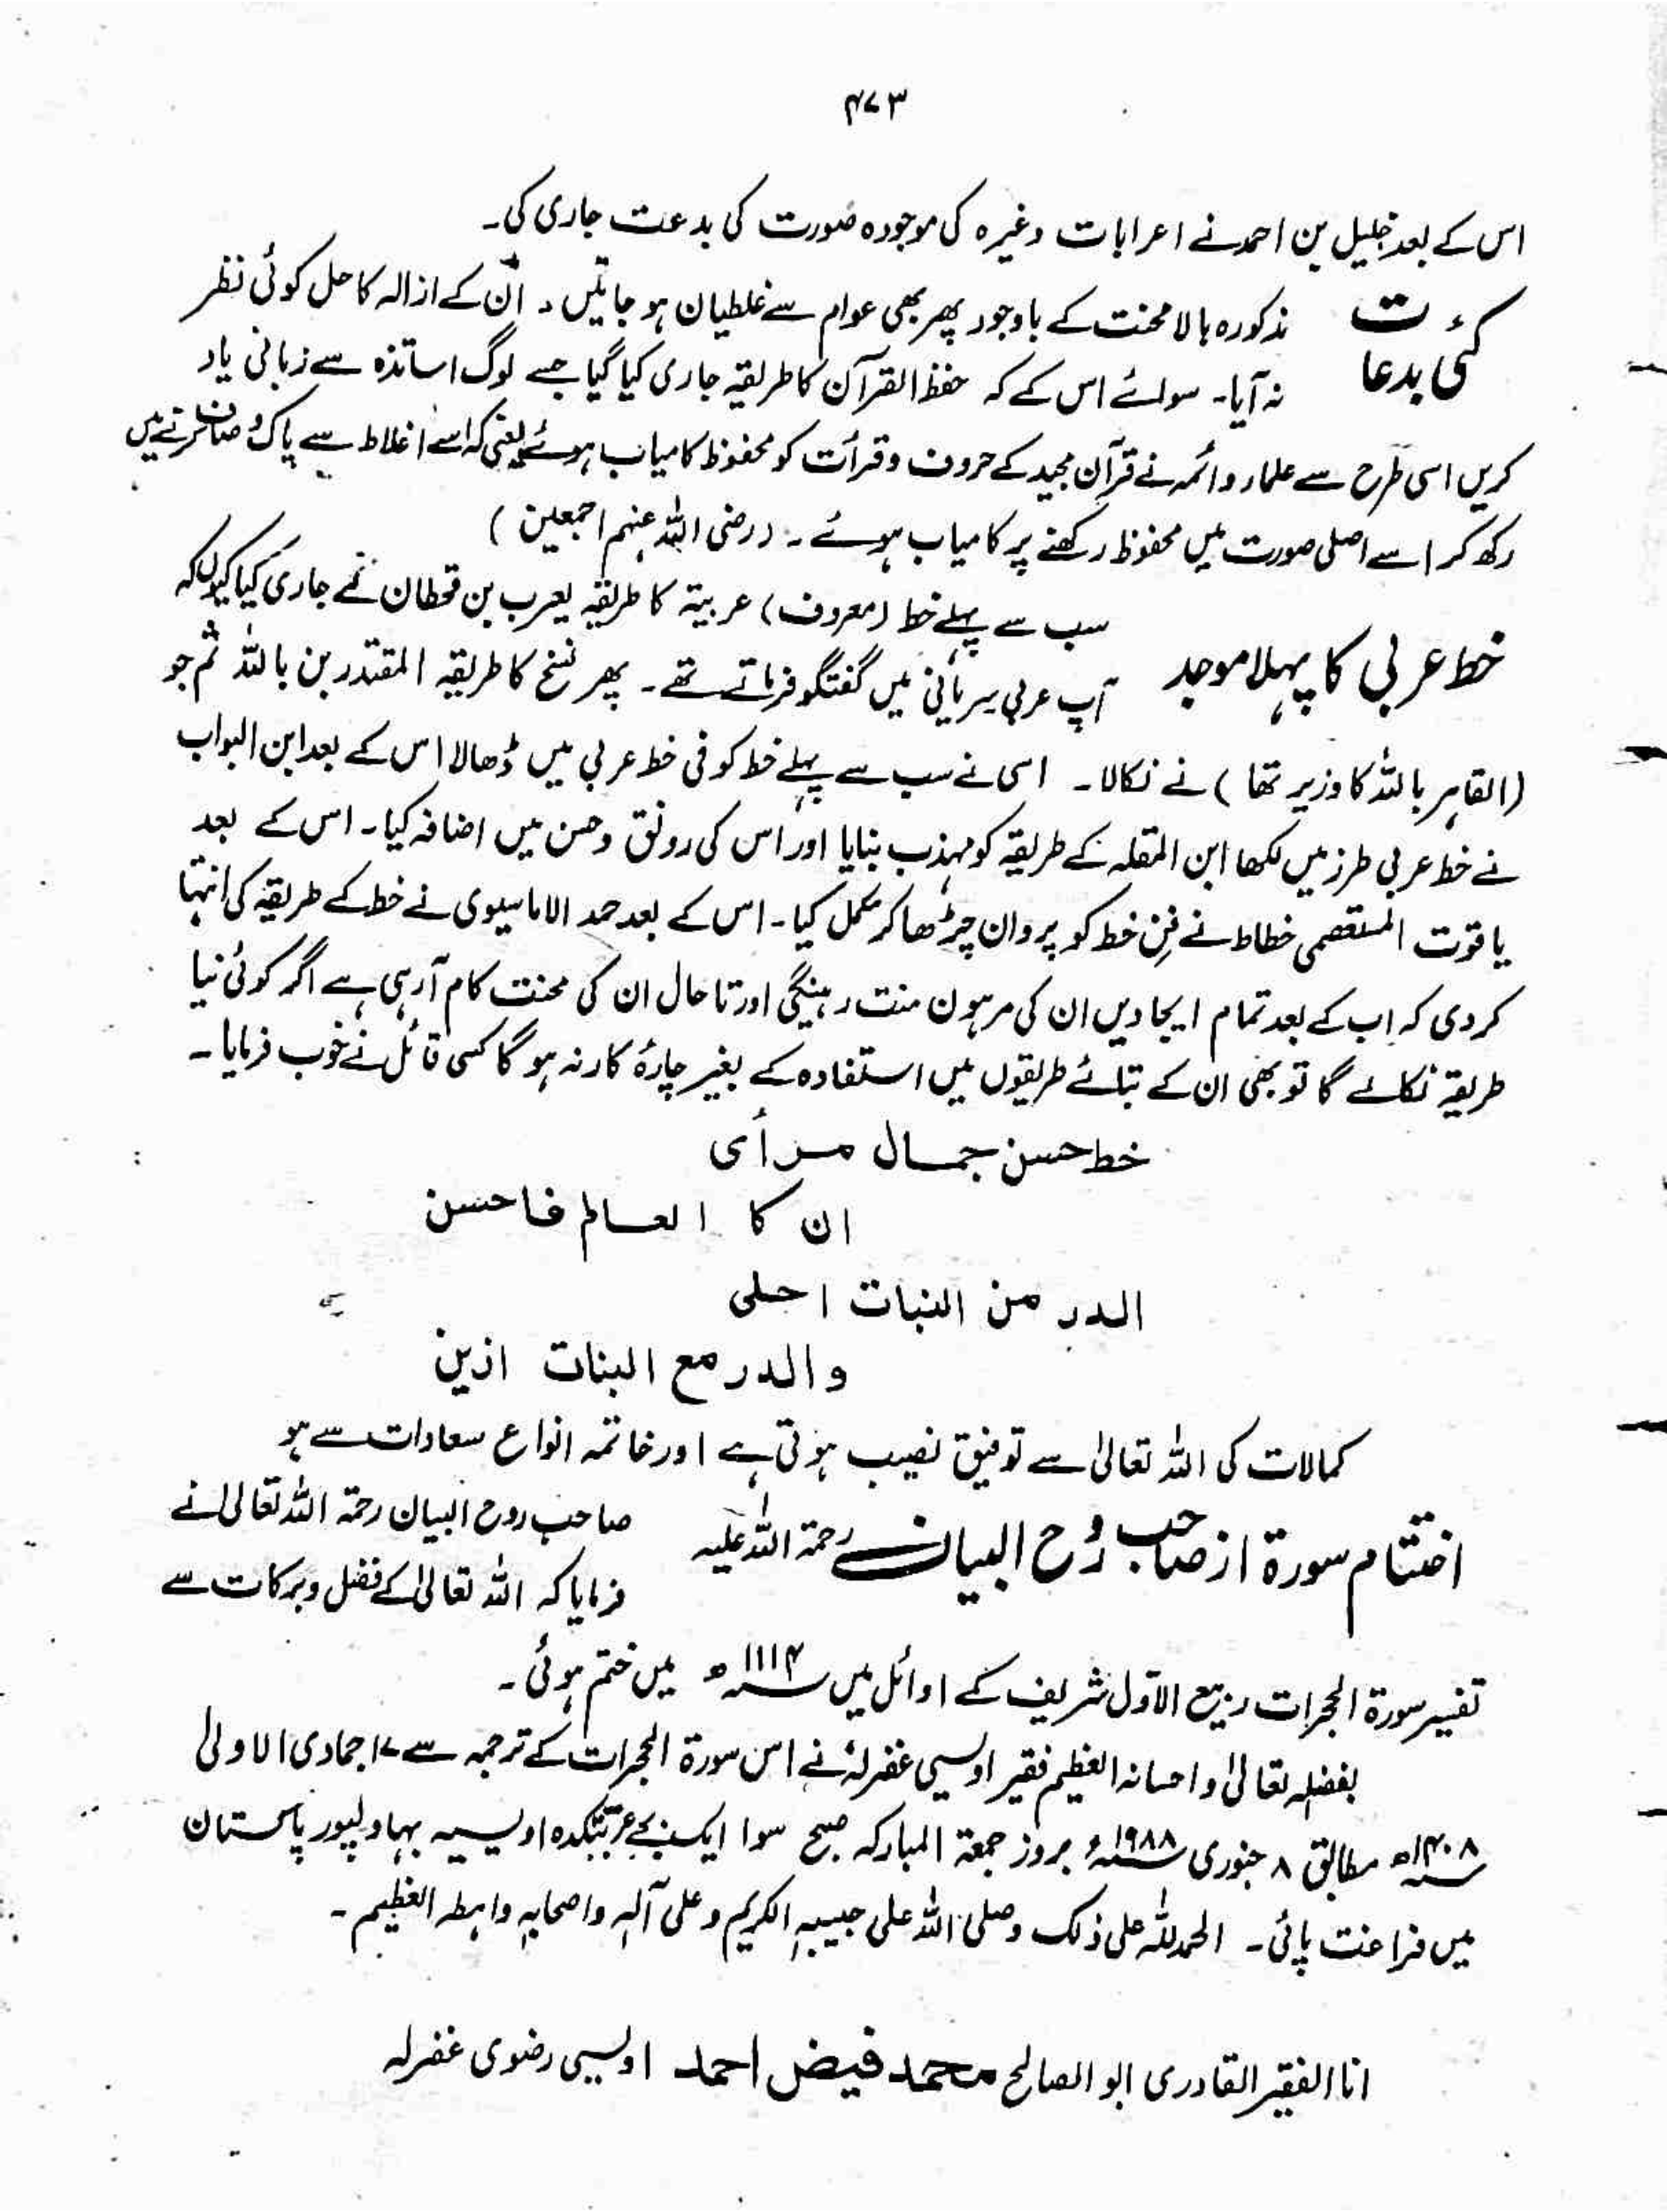 ۴۷۳
اس کے بعد خلیل بن احمد نے اعرابات وغیرہ کی موجودہ صورت کی بدعت جاری کی۔
کئی بدعات
مذکورہ بالا محنت کے باوجود پھر بھی عوام سے غلطیان ہو جاتیں۔ ان کے ازالہ کا حل کوئی نظر
نہ آیا۔ سوائے اس کے کہ حفظ القرآن کا طریقہ جاری کیا گیا جسے لوگ اساتذہ سے زبانی یاد
کریں اسی طرح سے علماء و ائمہ نے قرآن مجید کے حروف و قرأت کو محفوظ کامیاب ہوئے یعنی کہ اسے اغلاط سے پاک و صاف کرنے میں
رکھ کر اسے اصلی صورت میں محفوظ رکھنے پر کامیاب ہوئے۔ (رضی اللہ عنہم اجمعین)
خط عربی کا پہلا موجد
سب سے پہلے خط (معروف) عربیۃ کا طریقہ یعرب بن قحطان نے جاری کیا کیوں کہ
آپ عربی سریانی میں گفتگو فرماتے تھے۔ پھر نسخ کا طریقہ المقتدر بن باللہ ثم جو
(القاہر باللہ کا وزیر تھا) نے نکالا۔ اسی نے سب سے پہلے خط کوفی خط عربی میں ڈھالا اس کے بعد ابن البواب
نے خط عربی طرز میں لکھا ابن المقلہ کے طریقہ کو مہذب بنایا اور اس کی رونق و حسن میں اضافہ کیا۔ اس کے بعد
یاقوت المستعصمی خطاط نے فنِ خط کو پروان چڑھا کر مکمل کیا۔ اس کے بعد حمد الاماسیوی نے خط کے طریقہ کی انتہا
کر دی کہ اب کے بعد تمام ایجادیں ان کی مرہون منت رہینگی اور تا حال ان کی محنت کام آرہی ہے اگر کوئی نیا
طریقہ نکالے گا تو بھی ان کے بتائے طریقوں میں استفادہ کے بغیر چارۂ کار نہ ہو گا کسی قائل نے خوب فرمایا۔
خط حسن جمال مرأی
ان کا العالم فاحسن
الدر من النبات احلی
والدر مع البنات ازین
کمالات کی اللہ تعالیٰ سے توفیق نصیب ہوتی ہے اور خاتمہ انواع سعادات سے ہو
اختتام سورۃ از صاحب روح البیان رحمۃ اللہ علیہ
صاحب روح البیان رحمۃ اللہ تعالیٰ نے
فرمایا کہ اللہ تعالیٰ کے فضل و برکات سے
تفسیر سورۃ الحجرات ربیع الاول شریف کے اوائل میں ۱۱۱۴ھ میں ختم ہوئی۔
بفضلہ تعالیٰ و احسانہ العظیم فقیر اویسی غفرلہٗ نے اس سورۃ الحجرات کے ترجمہ سے ۱۷ جمادی الاولیٰ
۱۴۰۸ھ مطابق ۸ جنوری ۱۹۸۸ء بروز جمعۃ المبارکہ صبح سوا ایک بجے غربتکدہ اویسیہ بہاولپور پاکستان
میں فراغت پائی۔ الحمد للہ علی ذلک وصلی اللہ علی حبیبہ الکریم وعلی آلہ واصحابہ واہطہ العظیم۔
انا الفقیر القادری ابو الصالح محمد فیض احمد اویسی رضوی غفرلہ